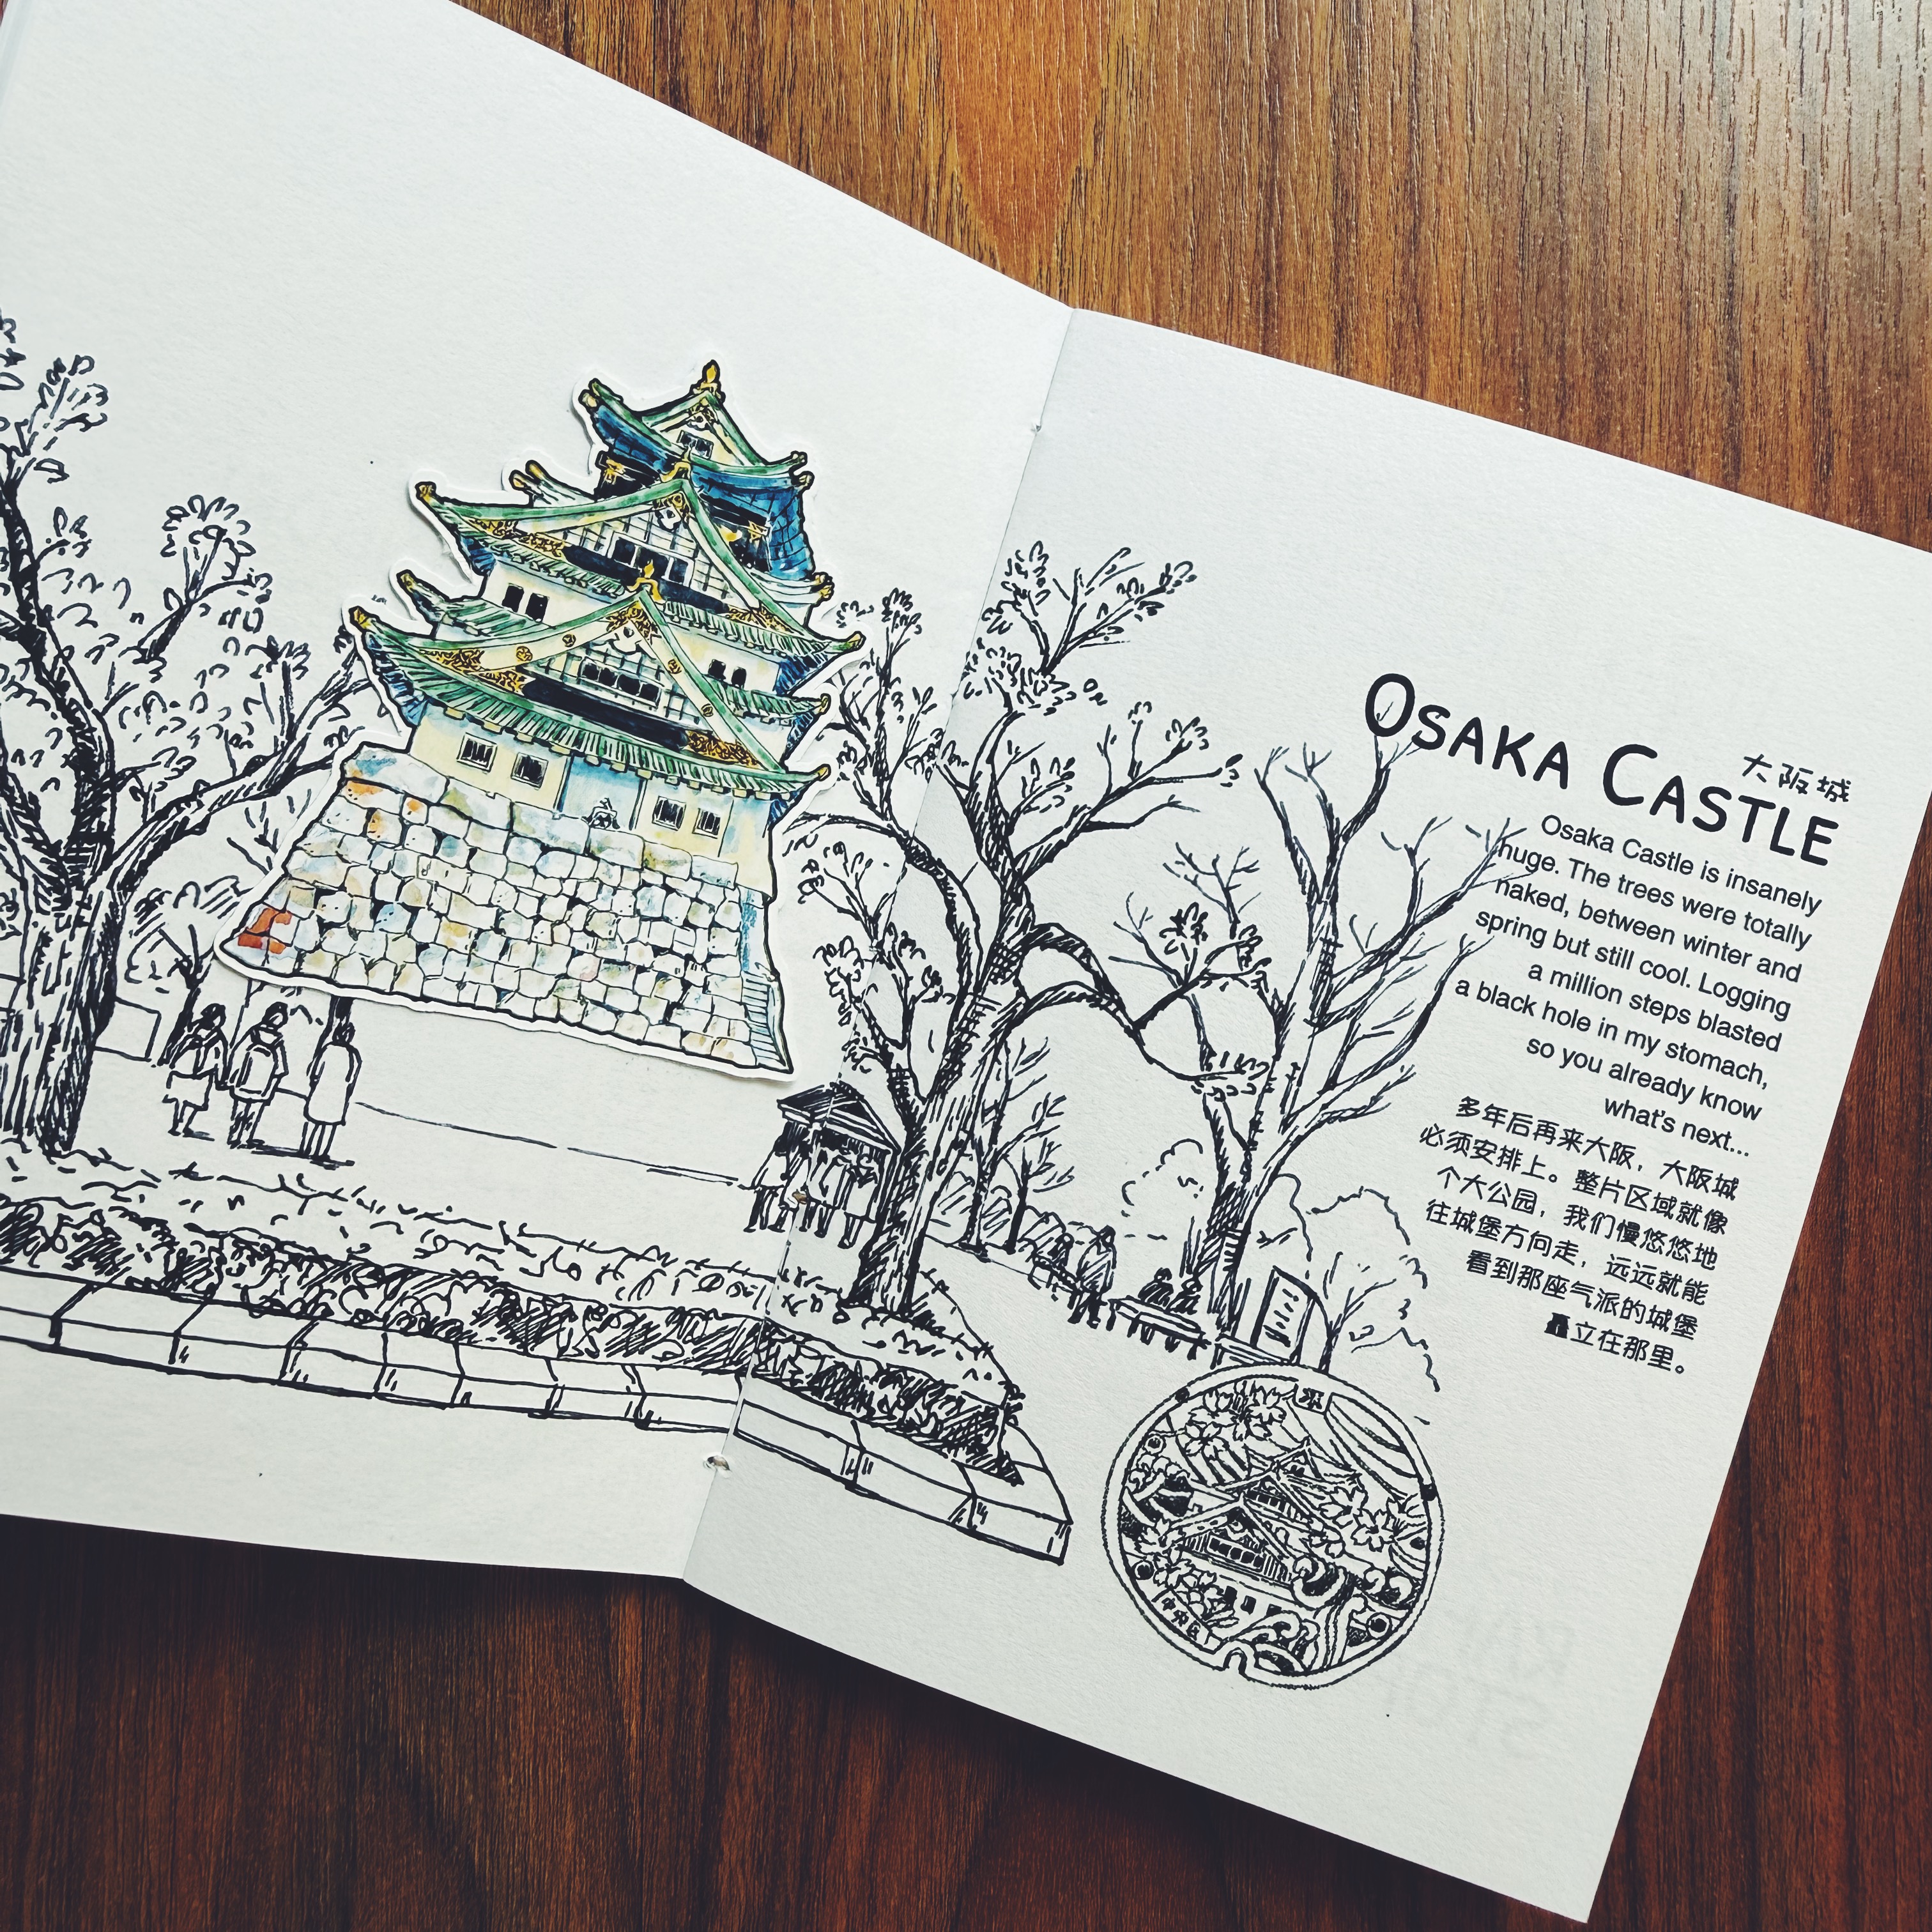 OSAKA CASTLE
大阪城
Osaka Castle is insanely
huge. The trees were totally
naked, between winter and
spring but still cool. Logging
a million steps blasted
a black hole in my stomach,
so you already know
what's next...
多年后再来大阪，大阪城
必须安排上。整片区域就像
个大公园，我们慢悠悠地
往城堡方向走，远远就能
看到那座气派的城堡
矗立在那里。
中央区